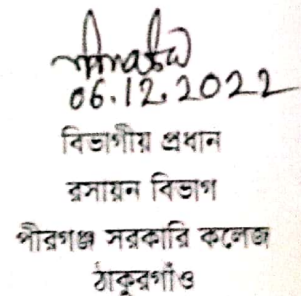 06.12.2022
বিভাগীয় প্রধান
রসায়ন বিভাগ
পীরগঞ্জ সরকারি কলেজ
ঠাকুরগাঁও